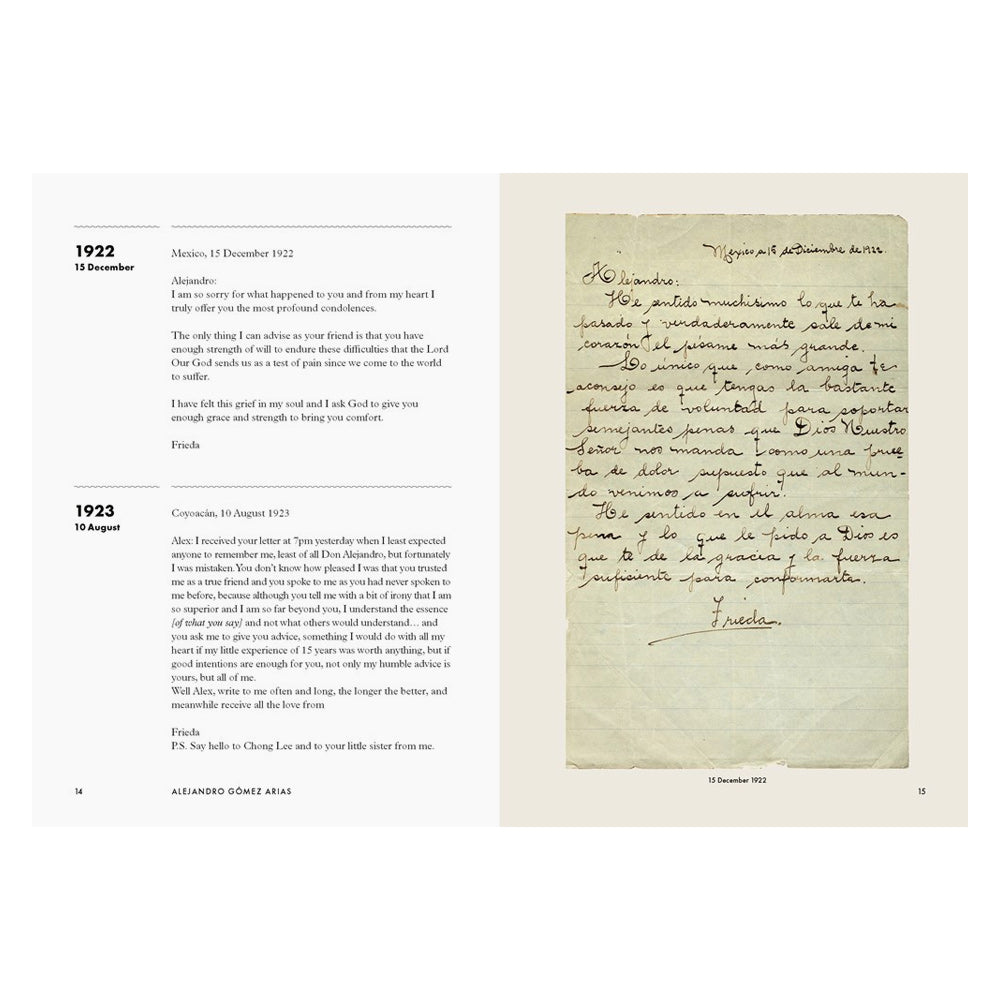 1922
15 December
Mexico, 15 December 1922
Alejandro:
I am so sorry for what happened to you and from my heart I
truly offer you the most profound condolences.
The only thing I can advise as your friend is that you have
enough strength of will to endure these difficulties that the Lord
Our God sends us as a test of pain since we come to the world
to suffer.
I have felt this grief in my soul and I ask God to give you
enough grace and strength to bring you comfort.
Frieda
1923
10 August
Coyoacán, 10 August 1923
Alex: I received your letter at 7pm yesterday when I least expected
anyone to remember me, least of all Don Alejandro, but fortunately
I was mistaken. You don't know how pleased I was that you trusted
me as a true friend and you spoke to me as you had never spoken to
me before, because although you tell me with a bit of irony that I am
so superior and I am so far beyond you, I understand the essence
[of what you say] and not what others would understand... and
you ask me to give you advice, something I would do with all my
heart if my little experience of 15 years was worth anything, but if
good intentions are enough for you, not only my humble advice is
yours, but all of me.
Well Alex, write to me often and long, the longer the better, and
meanwhile receive all the love from
Frieda
P.S. Say hello to Chong Lee and to your little sister from me.
14
ALEJANDRO GÓMEZ ARIAS
Mexico a 15 de Diciembre de 1922.
Alejandro:
He sentido muchisimo lo que te ha
pasado y verdaderamente sale de mi
corazón el pésame más grande.
Lo único que como amiga te
aconsejo es que tengas la bastante
fuerza de voluntad para soportar
semejantes penas que Dios Nuestro
Señor nos manda como una prue-
ba de dolor supuesto que al mun-
do venimos a sufrir.
He sentido en el alma esa
pena y lo que le pido a Dios es
que te de la gracia y la fuerza
suficiente para conformarte.
Frieda.
15 December 1922
15